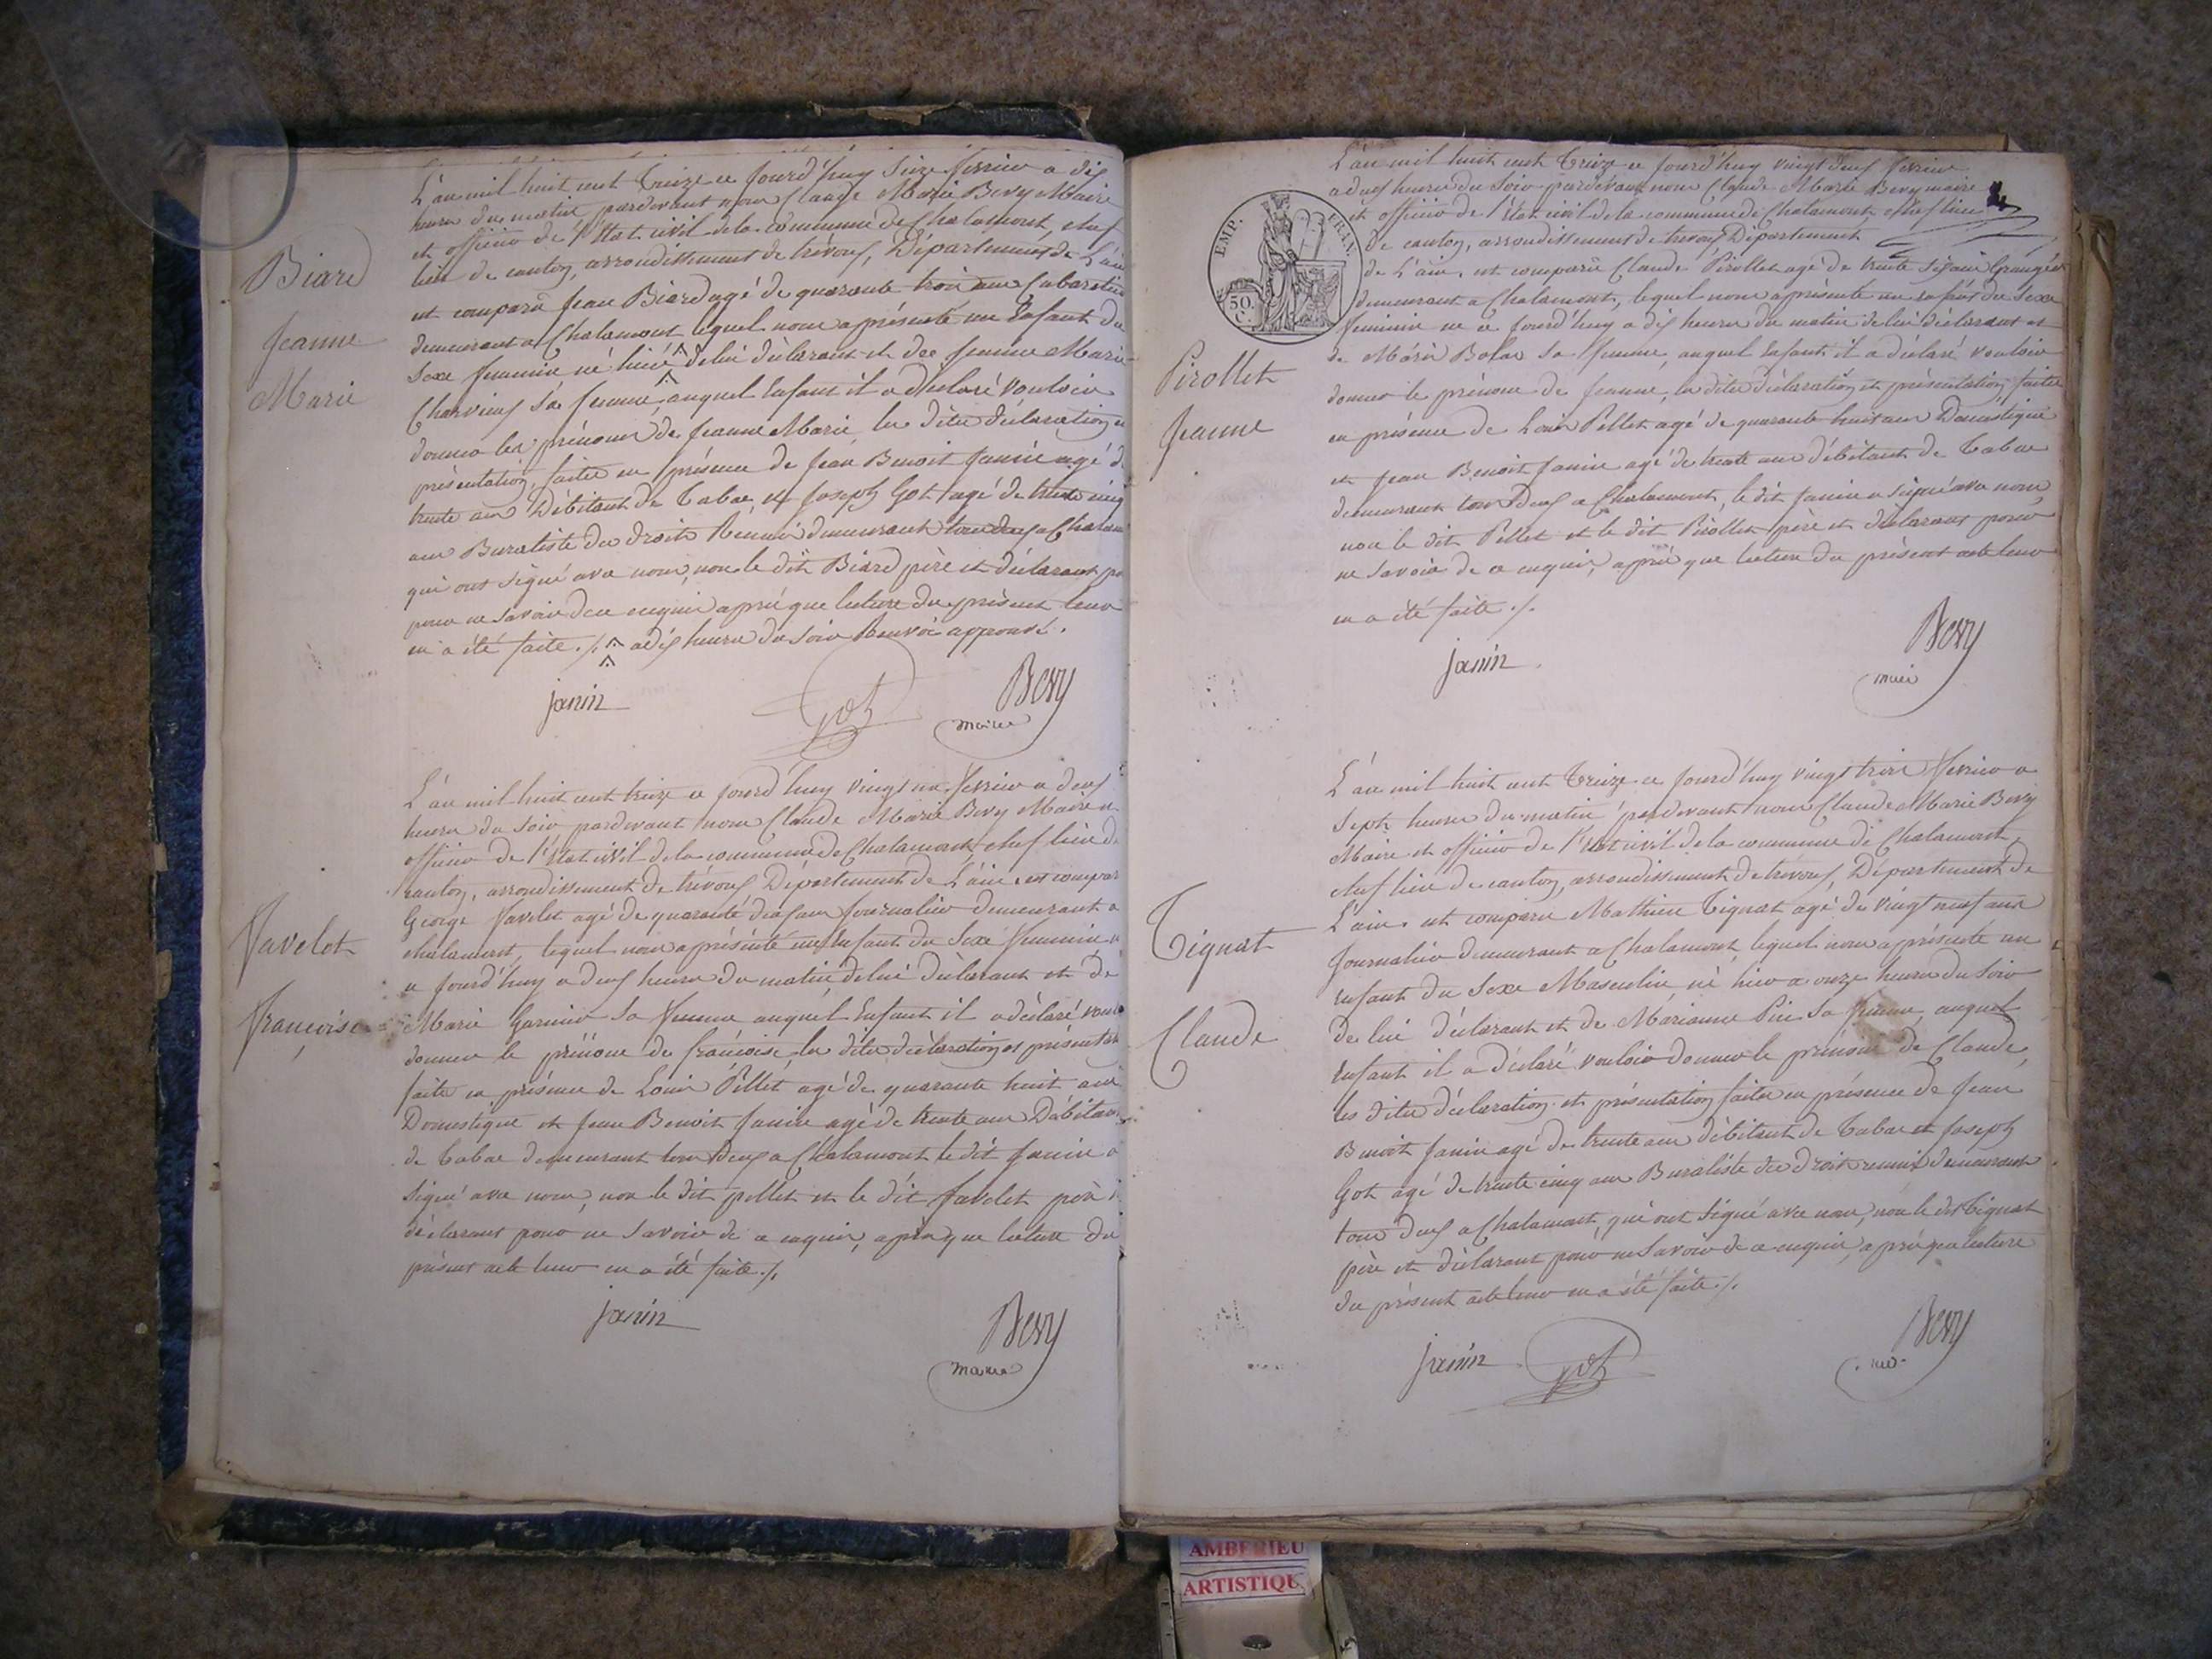 Biard
Jeanne
Marie
L'án mil huit cent treize ce jourd'huy seize fevrier a dix
heures du matin pardevant nous Claude Marie Bevy Maire
et officier de l'état civil de la commune de Chalamont, chef
lieu de canton, arrondissement de trevoux, Département de L'ain
est comparu Jean Biard agé de quarante trois ans Cabaretier
demeurant a Chalamont lequel nous a présenté un Enfant du
Sexe feminin né hier de lui déclarant et de Jeanne Marie
Charvieux sa femme, auquel Enfant il a declaré vouloir
donner les prénoms de Jeanne Marie, les dites déclaration et
présentation, faites en présence de Jean Benoit Janin agé de
trente ans Débitant de Tabac, et Joseph Got agé de trente cinq
ans Buraliste des droits Reunis demeurant tous deux a Chalam
qui ont signé avec nous, non le dit Biard père et déclarant
pour ne savoir de ce enquis après que lecture du présent leur
en a été faite ./. a dix heures du soir Renvoi approuvé.
janin
Got
Bevy
maire
Javelot
françoise
L'án mil huit cent treize ce jourd'huy vingt un fevrier a deux
heures du soir pardevant nous Claude Marie Bevy Maire et
officier de l'état civil de la commune de Chalamont chef lieu de
canton, arrondissement de trévoux Département de L'ain, est compar
George Javelot agé de quarante deux ans journalier demeurant a
chalamont, lequel nous a présenté un Enfant du Sexe feminin
ce jourd'huy a deux heures du matin, de lui déclarant et de
Marie Garnier sa femme auquel Enfant il a déclaré
donner le prénom de françoise, les dites déclaration et
faite en présence de Louis Pellet agé de quarante huit ans
Domestique et Jean Benoit Janin agé de trente ans Débitant
de tabac demeurant tous deux a Chalamont le dit Janin a
signé avec nous, non le dit pellet et le dit Javelot père
déclarant pour ne savoir de ce enquis, après que lecture du
présent acte leur en a été faite ./.
janin
Bevy
maire
EMP. FRAN.
50. C.
Pirollet
Jeanne
L'án mil huit cent treize ce jourd'huy vingt deux fevrier
a deux heures du soir pardevant nous Claude Marie Bevy maire
et officier de l'état civil de la commune de Chalamont chef lieu
de canton, arrondissement de trevoux Département
de L'ain, est comparu Claude Pirollet agé de trente six ans Granger
demeurant a Chalamont, lequel nous a présenté un enfant du Sexe
feminin né ce jourd'huy a dix heures du matin de lui déclarant et
de Marie sa femme, auquel Enfant il a déclaré vouloir
donner le prénom de Jeanne, les dites déclaration et présentation faites
en présence de Louis Pellet agé de quarante huit ans Domestique
et Jean Benoit Janin agé de trente ans débitant de Tabac
demeurant tous deux a Chalamont, le dit Janin a signé avec nous,
non le dit Pellet et le dit Pirollet père et déclarant pour
ne savoir de ce enquis, après que lecture du présent acte leur
en a été faite ./.
janin
Bevy
Tignat
Claude
L'án mil huit cent treize ce jourd'huy vingt trois fevrier a
sept heures du matin pardevant nous Claude Marie Bevy
Maire et officier de l'état civil de la commune de Chalamont
chef lieu de canton, arrondissement de trevoux, Département de
L'ain, est comparu Mathieu Tignat agé de vingt neuf ans
journalier demeurant a Chalamont, lequel nous a présenté un
enfant du Sexe Masculin né hier a onze heures du soir
de lui déclarant et de Marianne sa femme, auquel
Enfant il a déclaré vouloir donner le prénom de Claude,
les dites déclaration et présentation faites en présence de Jean
Benoit Janin agé de trente ans débitant de Tabac et Joseph
Got agé de trente cinq ans Buraliste des droits reunis demeurant
tous deux a Chalamont, qui ont signé avec nous, non le dit Tignat
père et déclarant pour ne savoir de ce enquis, après que lecture
du présent acte leur en a été faite ./.
janin
Got
Bevy
AMBERIEU
ARTISTIQU